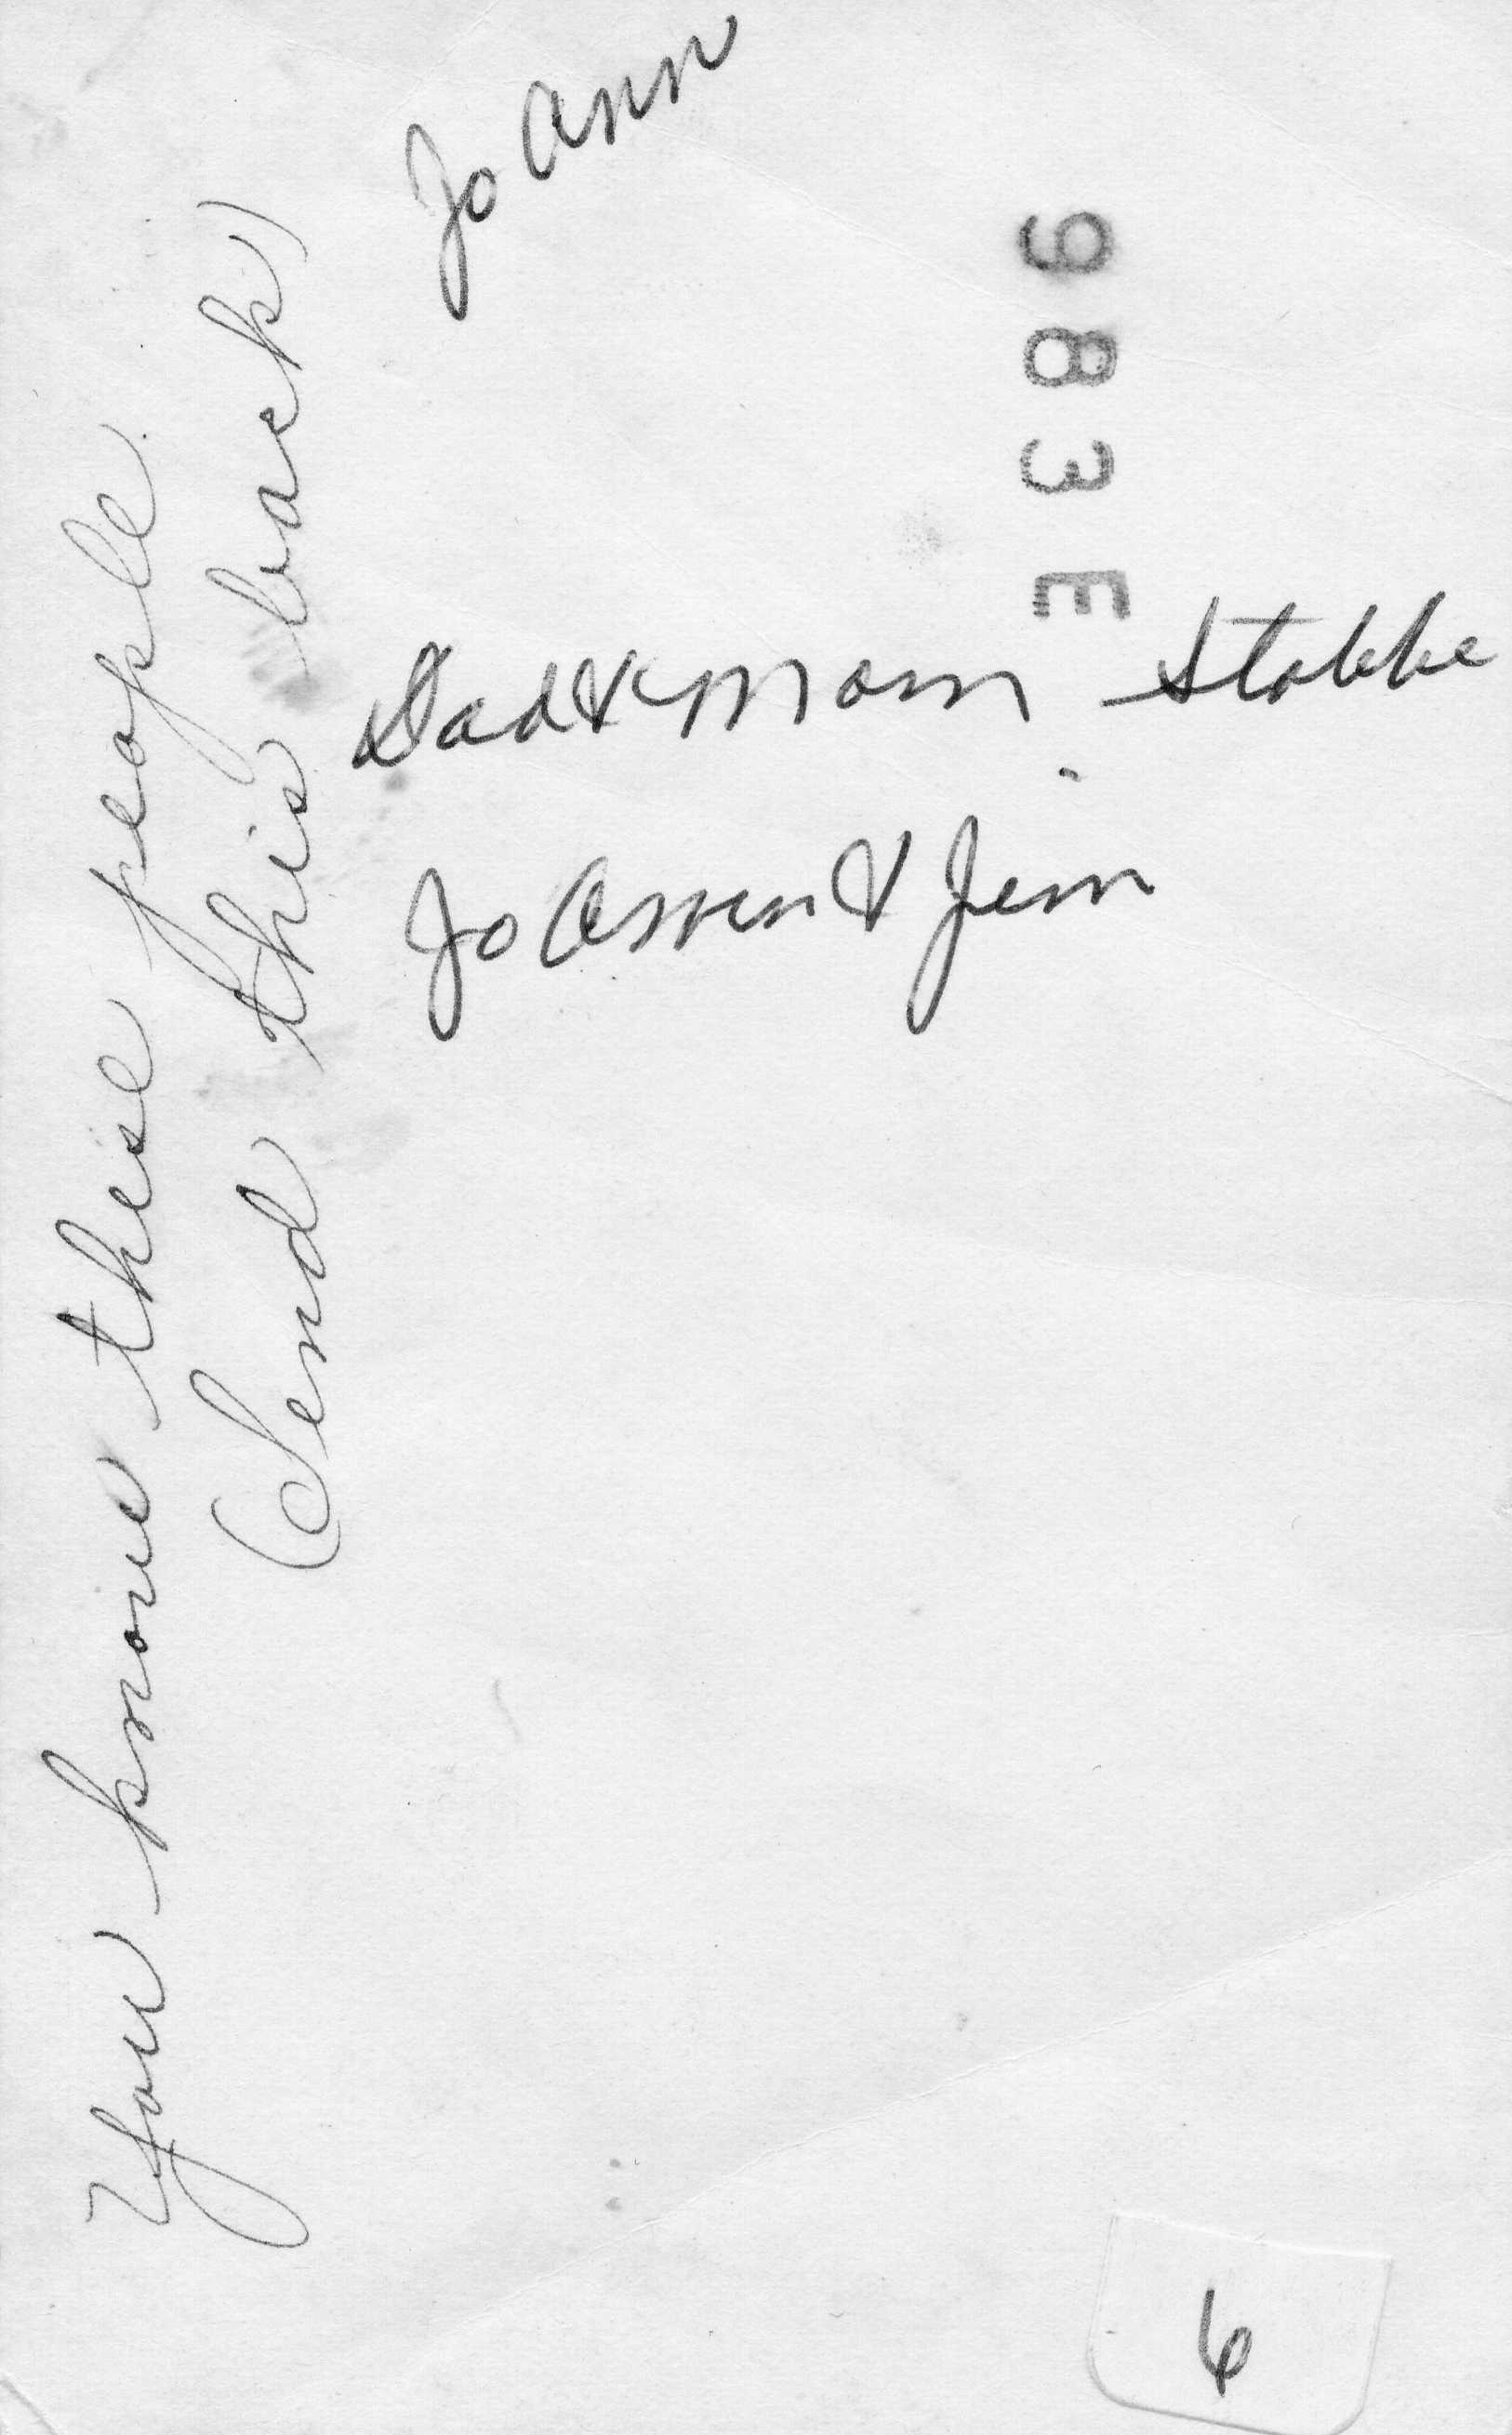 Jo Ann
983E
Dad & Mom Stobbe
Jo Ann & Jim
You know these people.
(Send this back)
6